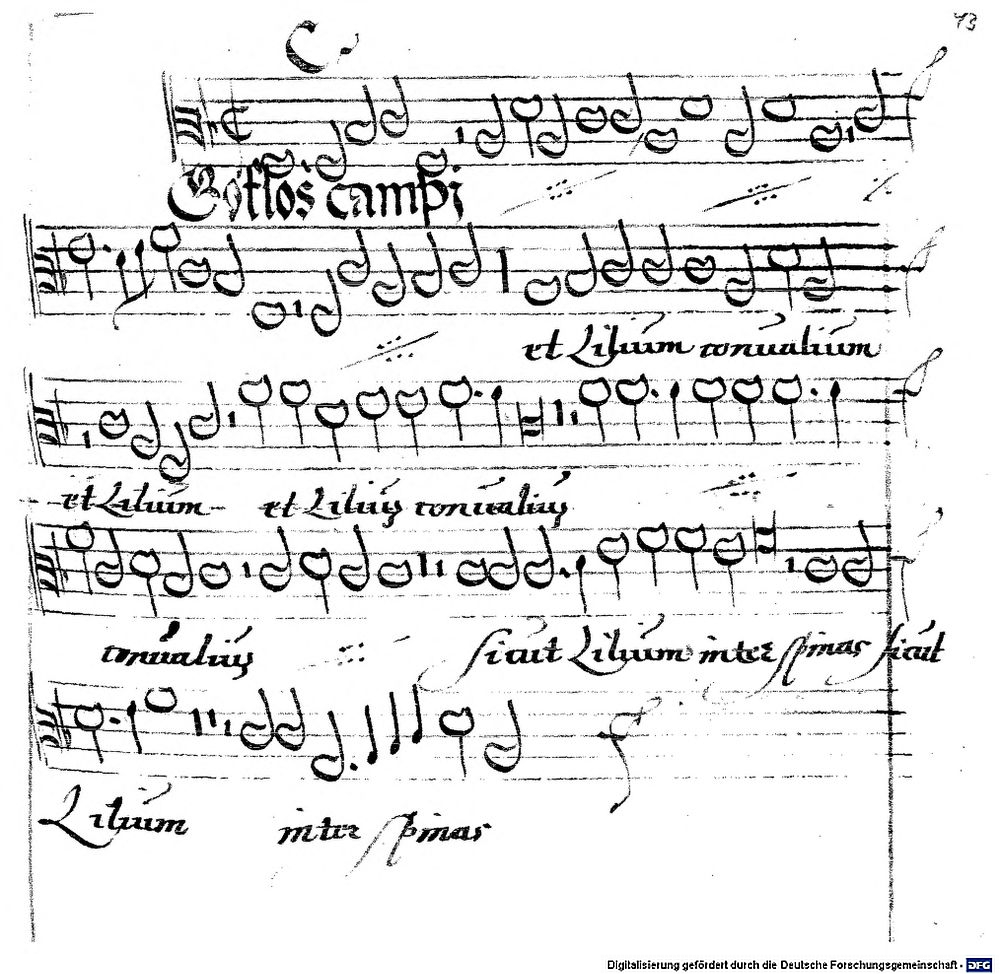 43
C
Ego flos campi
et Lilium conualium
et Lilium et Liliū conualiū
conualiū sicut Lilium inter spinas sicut
Lilium inter spinas
Digitalisierung gefördert durch die Deutsche Forschungsgemeinschaft - DFG